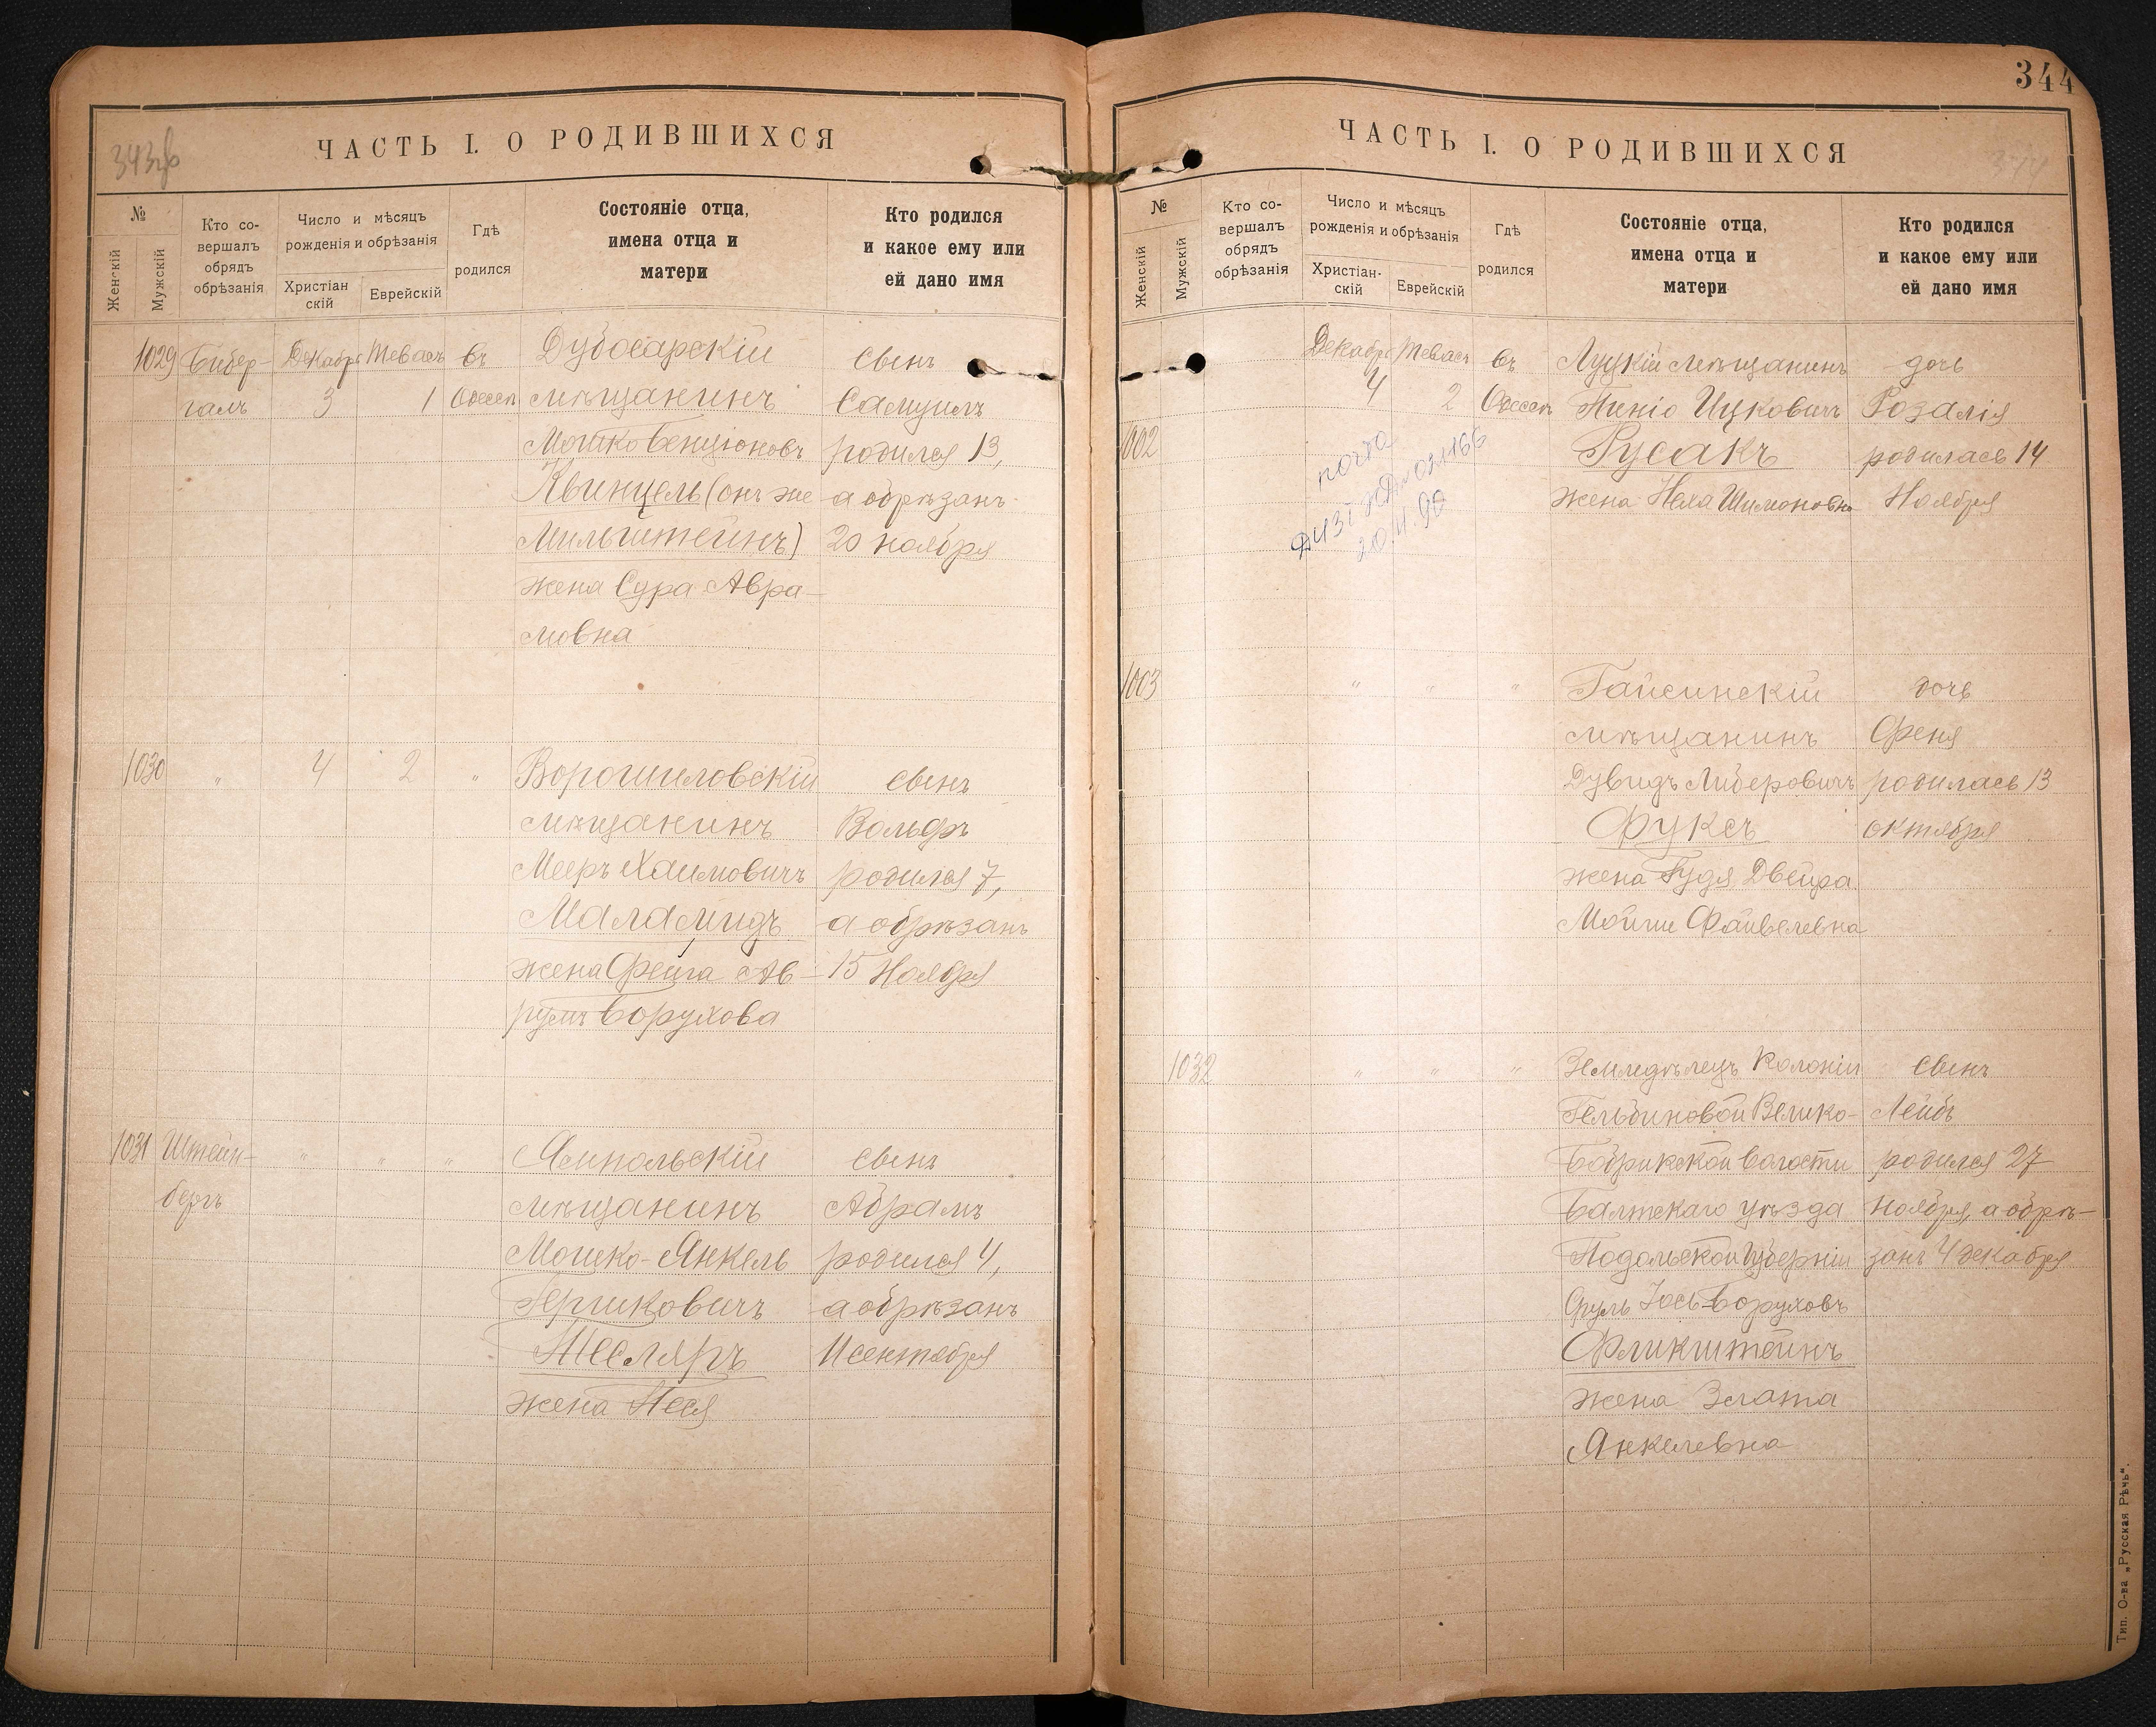 343об
ЧАСТЬ I. О РОДИВШИХСЯ
№
Женскій
Мужскій
Кто со-
вершалъ
обрядъ
обрѣзанія
Число и мѣсяцъ
рожденія и обрѣзанія
Христіан
скій
Еврейскій
Гдѣ
родился
Состояніе отца,
имена отца и
матери
Кто родился
и какое ему или
ей дано имя
1029 Бибер- Декабрь Тевасъ въ Дубосарскій сынъ
галъ 3 1 Одессѣ мѣщанинъ Самуилъ
Мошко Бенціоновъ родился 13,
Квинцель (онъ же а обрѣзанъ
Мильштейнъ) 20 ноября
жена Сура Авра-
мовна
1030 " 4 2 " Ворошиловскій сынъ
мѣщанинъ Вольфъ
Мееръ Хаимовичъ родился 7,
Маламудъ а обрѣзанъ
жена Фейга Ав- 15 Ноября
румъ Борухова
1031 Штейн- " " " Ямпольскій сынъ
бергъ мѣщанинъ Абрамъ
Мошко-Янкель родился 4,
Гершковичъ а обрѣзанъ
Тесляръ 11 сентября
жена Неся
344
ЧАСТЬ I. О РОДИВШИХСЯ
344
№
Женскій
Мужскій
Кто со-
вершалъ
обрядъ
обрѣзанія
Число и мѣсяцъ
рожденія и обрѣзанія
Христіан-
скій
Еврейскій
Гдѣ
родился
Состояніе отца,
имена отца и
матери
Кто родился
и какое ему или
ей дано имя
Декабрь Тевасъ въ Луцкій мѣщанинъ дочь
4 2 Одессѣ Пиніо Ицковичъ Розалія
1002 Русакъ родилась 14
жена Неха Шимоновна Ноября
20.11.90
1003 " " " Гайсинскій дочь
мѣщанинъ Феня
Дувидъ Либеровичъ родилась 13
Фуксъ октября
жена Гудя Двейра
Мойше Файвелевна
1032 " " " Земледѣлецъ Колоніи сынъ
Гельбиновой Велико- Лейбъ
Бобрикской волости родился 27
Балтскаго уѣзда Ноября, а обрѣ-
Подольской Губерніи занъ 4 декабря
Сруль Іось Боруховъ
Фликштейнъ
жена Злата
Янкелевна
Тип. О-ва „Русская Рѣчь".